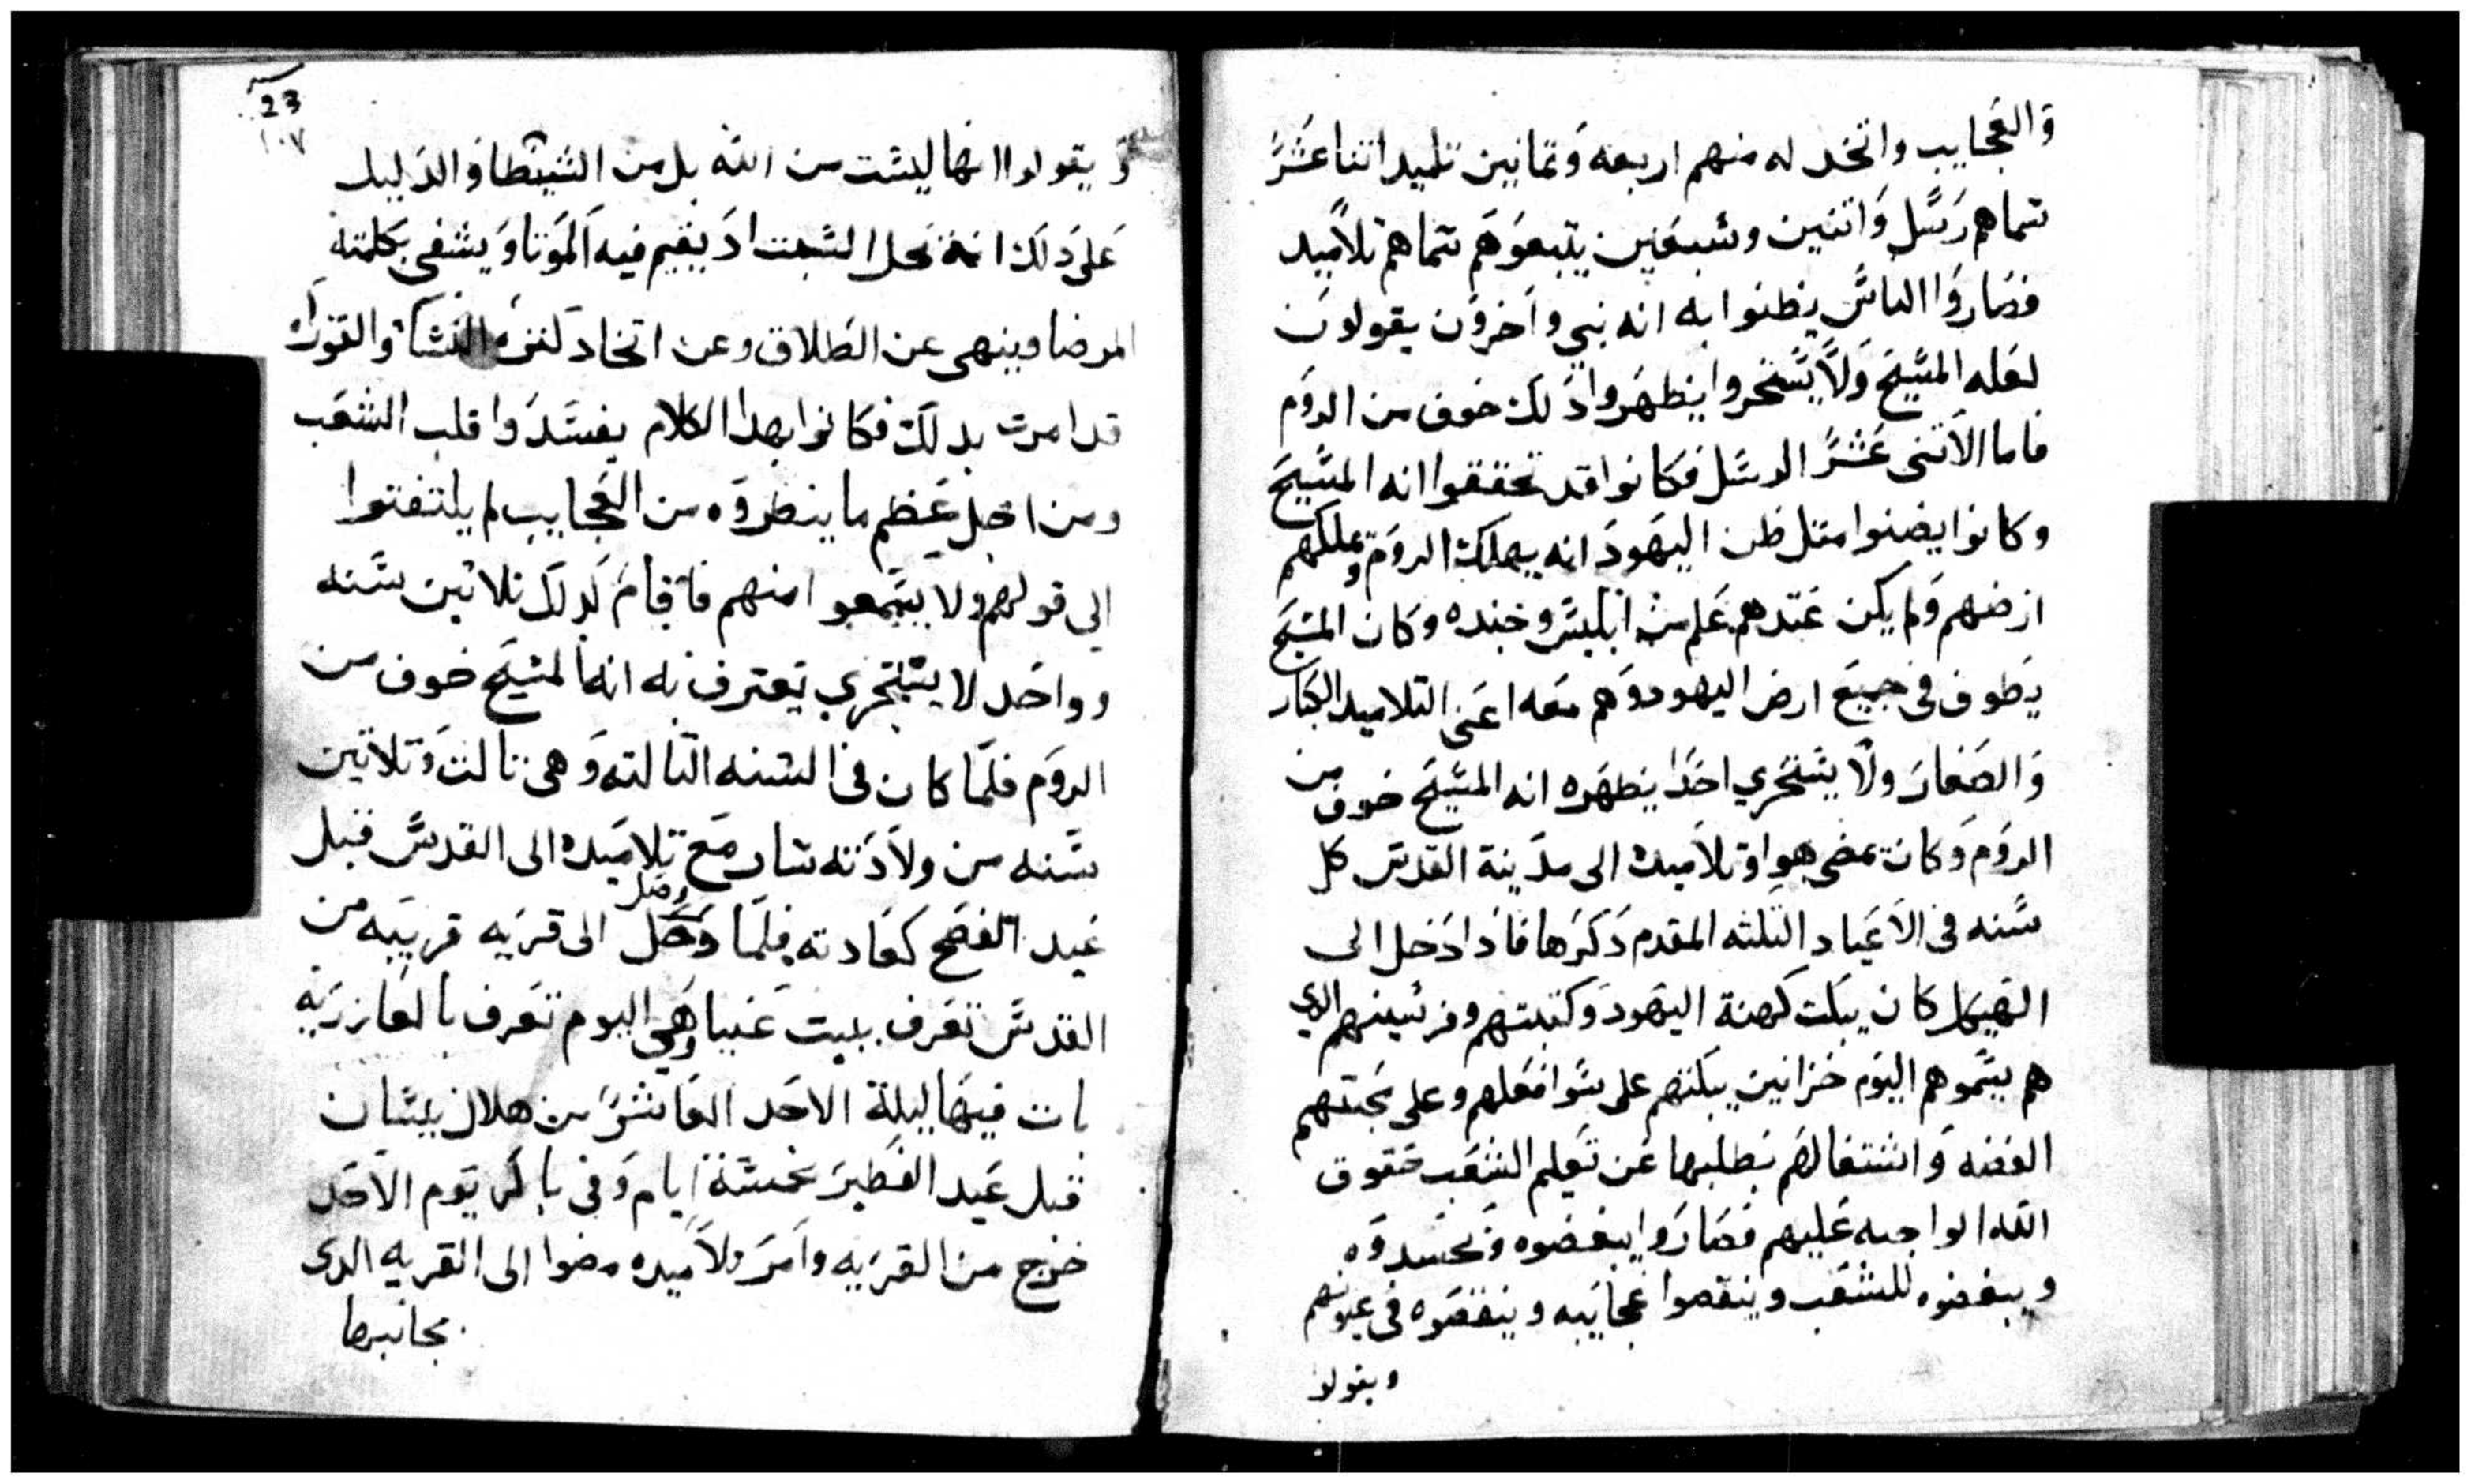 والعجايب واتخد له منهم اربعه وتمانين تلميد اتناعشر
سماهم رسل واتنين وسبعين يتبعوهم سماهم تلاميد
فصاروا الناس يظنوا به انه نبي واخرون يقولون
لعله المسيح ولا يستجروا يظهروا دلك خوف من الروم
فاما الاتنى عشر الرسل فكانوا قد تحققوا انه المسيح
وكانوا يضنوا متل ظن اليهود انه يهلك الروم ويملكهم
ارضهم ولم يكن عندهم علم من ابليس وجنده وكان المسيح
يطوف فى جميع ارض اليهود وهم معه اعنى التلاميد الكبار
والصغار ولا يستجري احدا يظهره انه المسيح خوف من
الروم وكان يمضى هوا وتلاميده الى مدينة القدس كل
سنه فى الاعياد التلته المقدم دكرها فادا دخل الى
الهيكل كان يبكت كهنة اليهود وكتبتهم وفرنسيينهم الدي
هم يسموهم اليوم خزانين يبكتهم على سوا فعلهم وعلى محبتهم
الفضه واشتغالهم بطلبها عن تعليم الشعب حقوق
الله الواجبه عليهم فصاروا يبغضوه ويحسدوه
ويبغضوه للشعب وينقصوا عجايبه وينقصوه فى عيونهم
ويقولو
23
١٠٧
و يقولوا انها ليست من الله بل من الشيطان والدليل
على دلك انه يحل السبت اد يقيم فيه الموتا ويشفى بكلمته
المرضا وينهى عن الطلاق وعن اتخاد كترة النسا والتوراه
قد امرت بدلك فكانوا بهدا الكلام يفسدوا قلب الشعب
ومن اجل عظم ما ينظروه من العجايب لم يلتفتوا
الى قولهم ولا يسمعوا منهم فاقام لدلك تلاتين سنه
وواحد لا يستجري يعترف به انه المسيح خوف من
الروم فلما كان فى السنه التالته وهى تالت وتلاتين
سنه من ولادته سار مع تلاميده الى القدس قبل
عيد الفصح كعادته فلما دخل وصل الى قريه قريبه من
القدس تعرف ببيت عنيا وهى اليوم تعرف بالعازريه
بات فيها ليلة الاحد العاشر من هلال نيسان
قبل عيد الفطير بخمسة ايام وفى باكر يوم الاحد
خرج من القريه وامر تلاميده مضوا الى القريه الدى
بجانبها